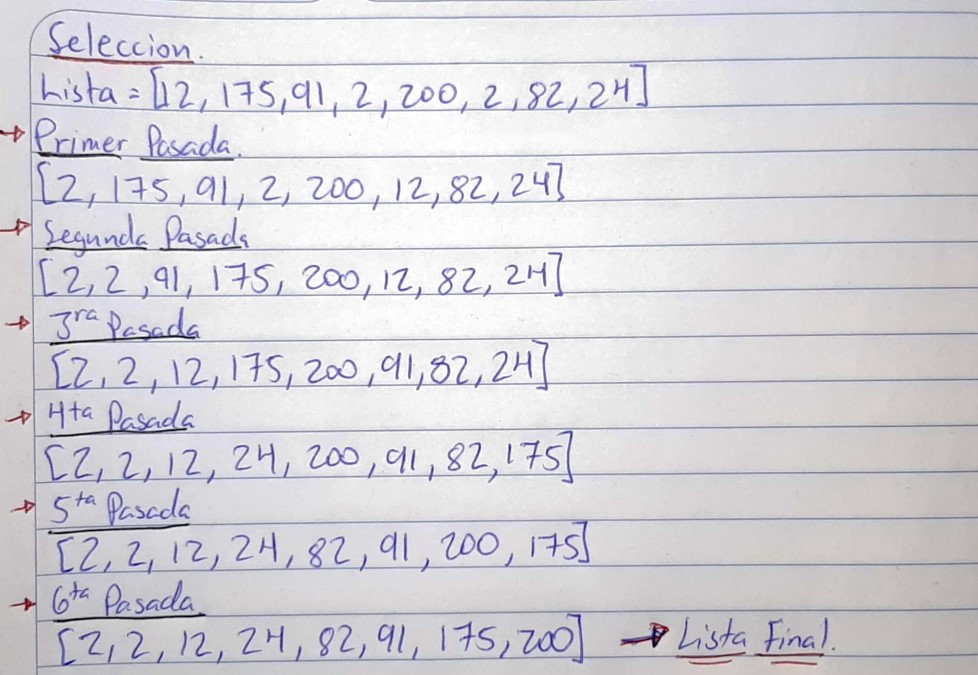 Seleccion.
Lista = [12, 175, 91, 2, 200, 2, 82, 24]
→ Primer Pasada.
[2, 175, 91, 2, 200, 12, 82, 24]
→ Segunda Pasada
[2, 2, 91, 175, 200, 12, 82, 24]
→ 3ra Pasada
[2, 2, 12, 175, 200, 91, 82, 24]
→ 4ta Pasada
[2, 2, 12, 24, 200, 91, 82, 175]
→ 5ta Pasada
[2, 2, 12, 24, 82, 91, 200, 175]
→ 6ta Pasada
[2, 2, 12, 24, 82, 91, 175, 200] → Lista Final.